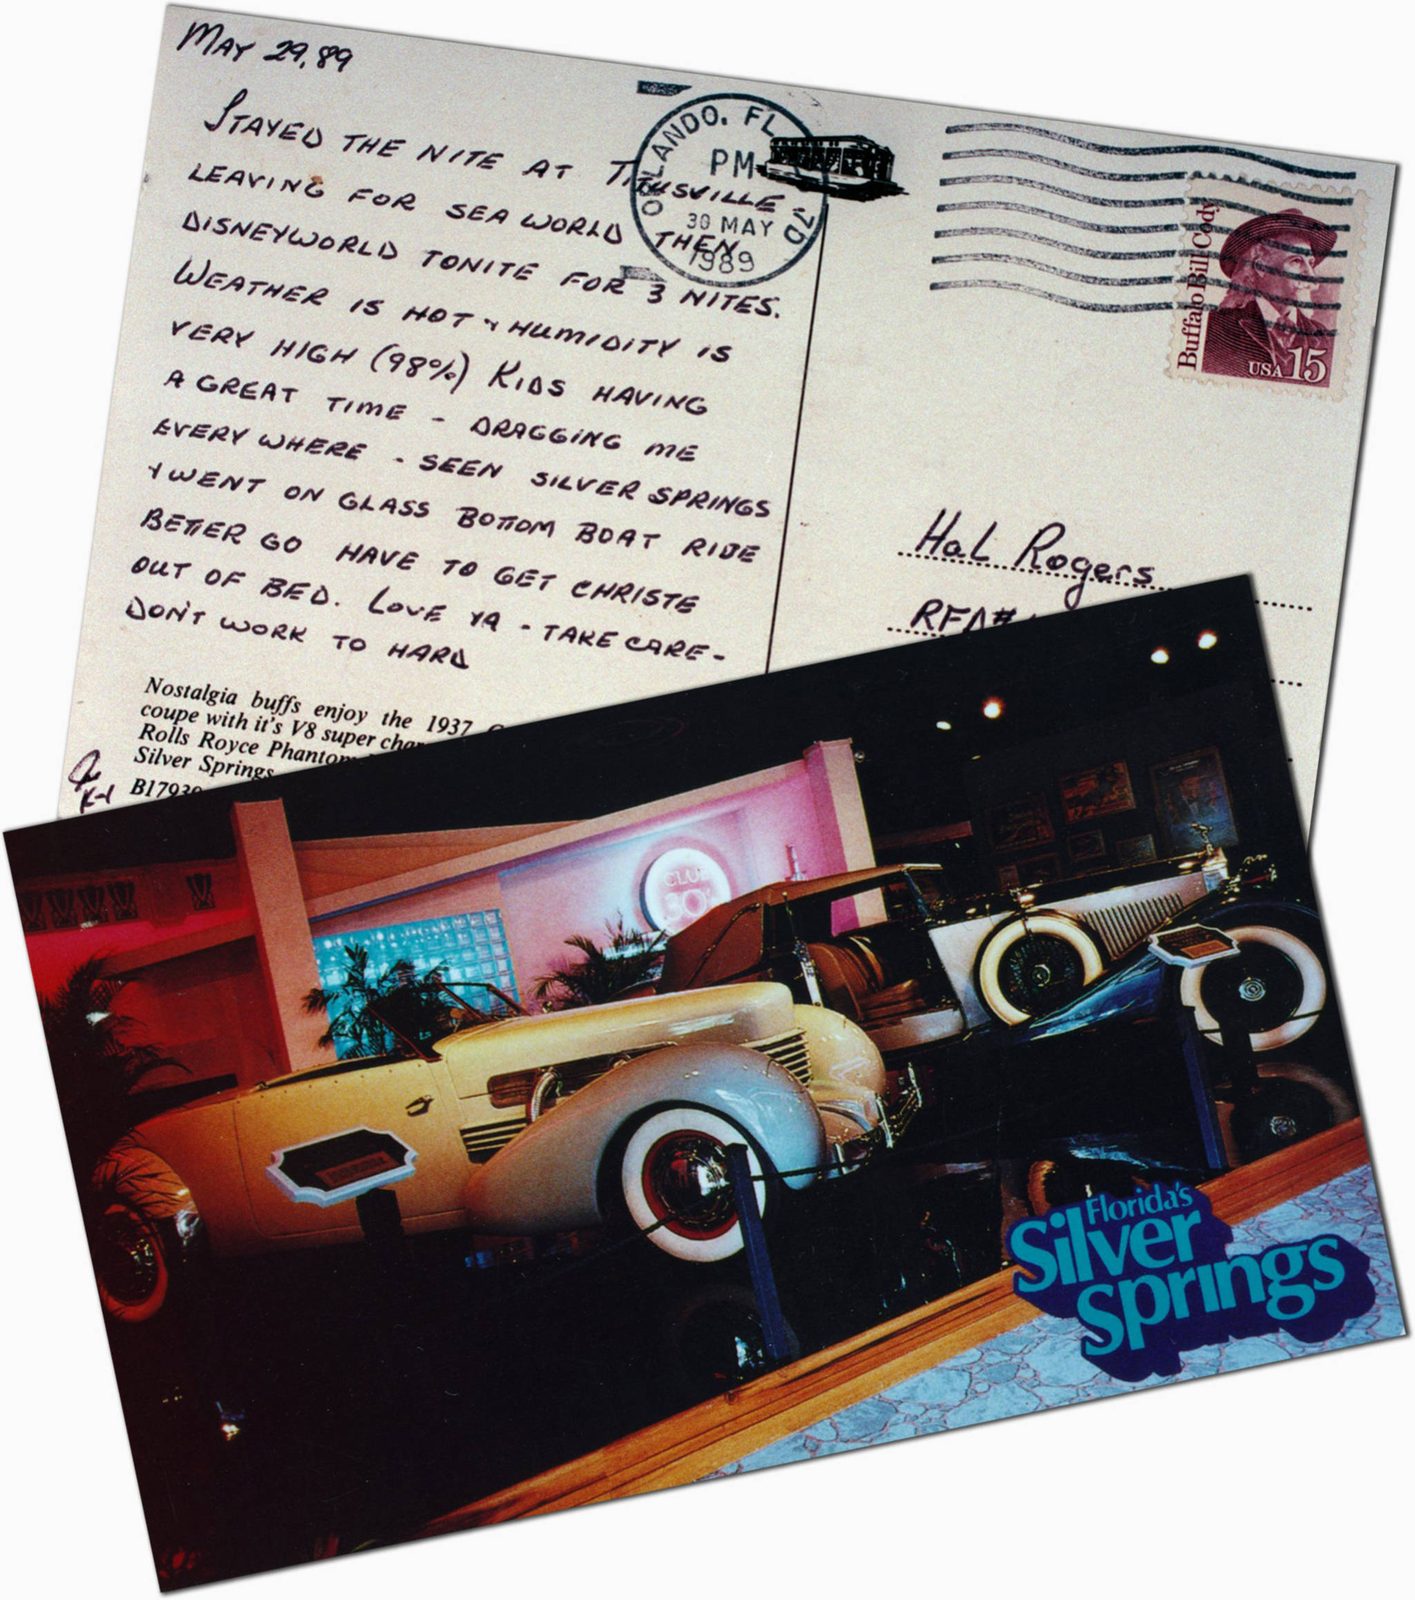 May 29, 89
STAYED THE NITE AT TITUSVILLE
LEAVING FOR SEA WORLD THEN
DISNEYWORLD TONITE FOR 3 NITES.
WEATHER IS HOT & HUMIDITY IS
VERY HIGH (98%) KIDS HAVING
A GREAT TIME - DRAGGING ME
EVERY WHERE - SEEN SILVER SPRINGS
& WENT ON GLASS BOTTOM BOAT RIDE
BETTER GO HAVE TO GET CHRISTE
OUT OF BED. LOVE YA - TAKE CARE -
DON'T WORK TO HARD
Nostalgia buffs enjoy the 1937
coupe with it's V8 super
Rolls Royce Phantom
Silver Springs
ORLANDO, FL
PM
30 MAY
1989
Buffalo Bill Cody
USA 15
Hal Rogers
RFD#
CLUB
Florida's
Silver
Springs